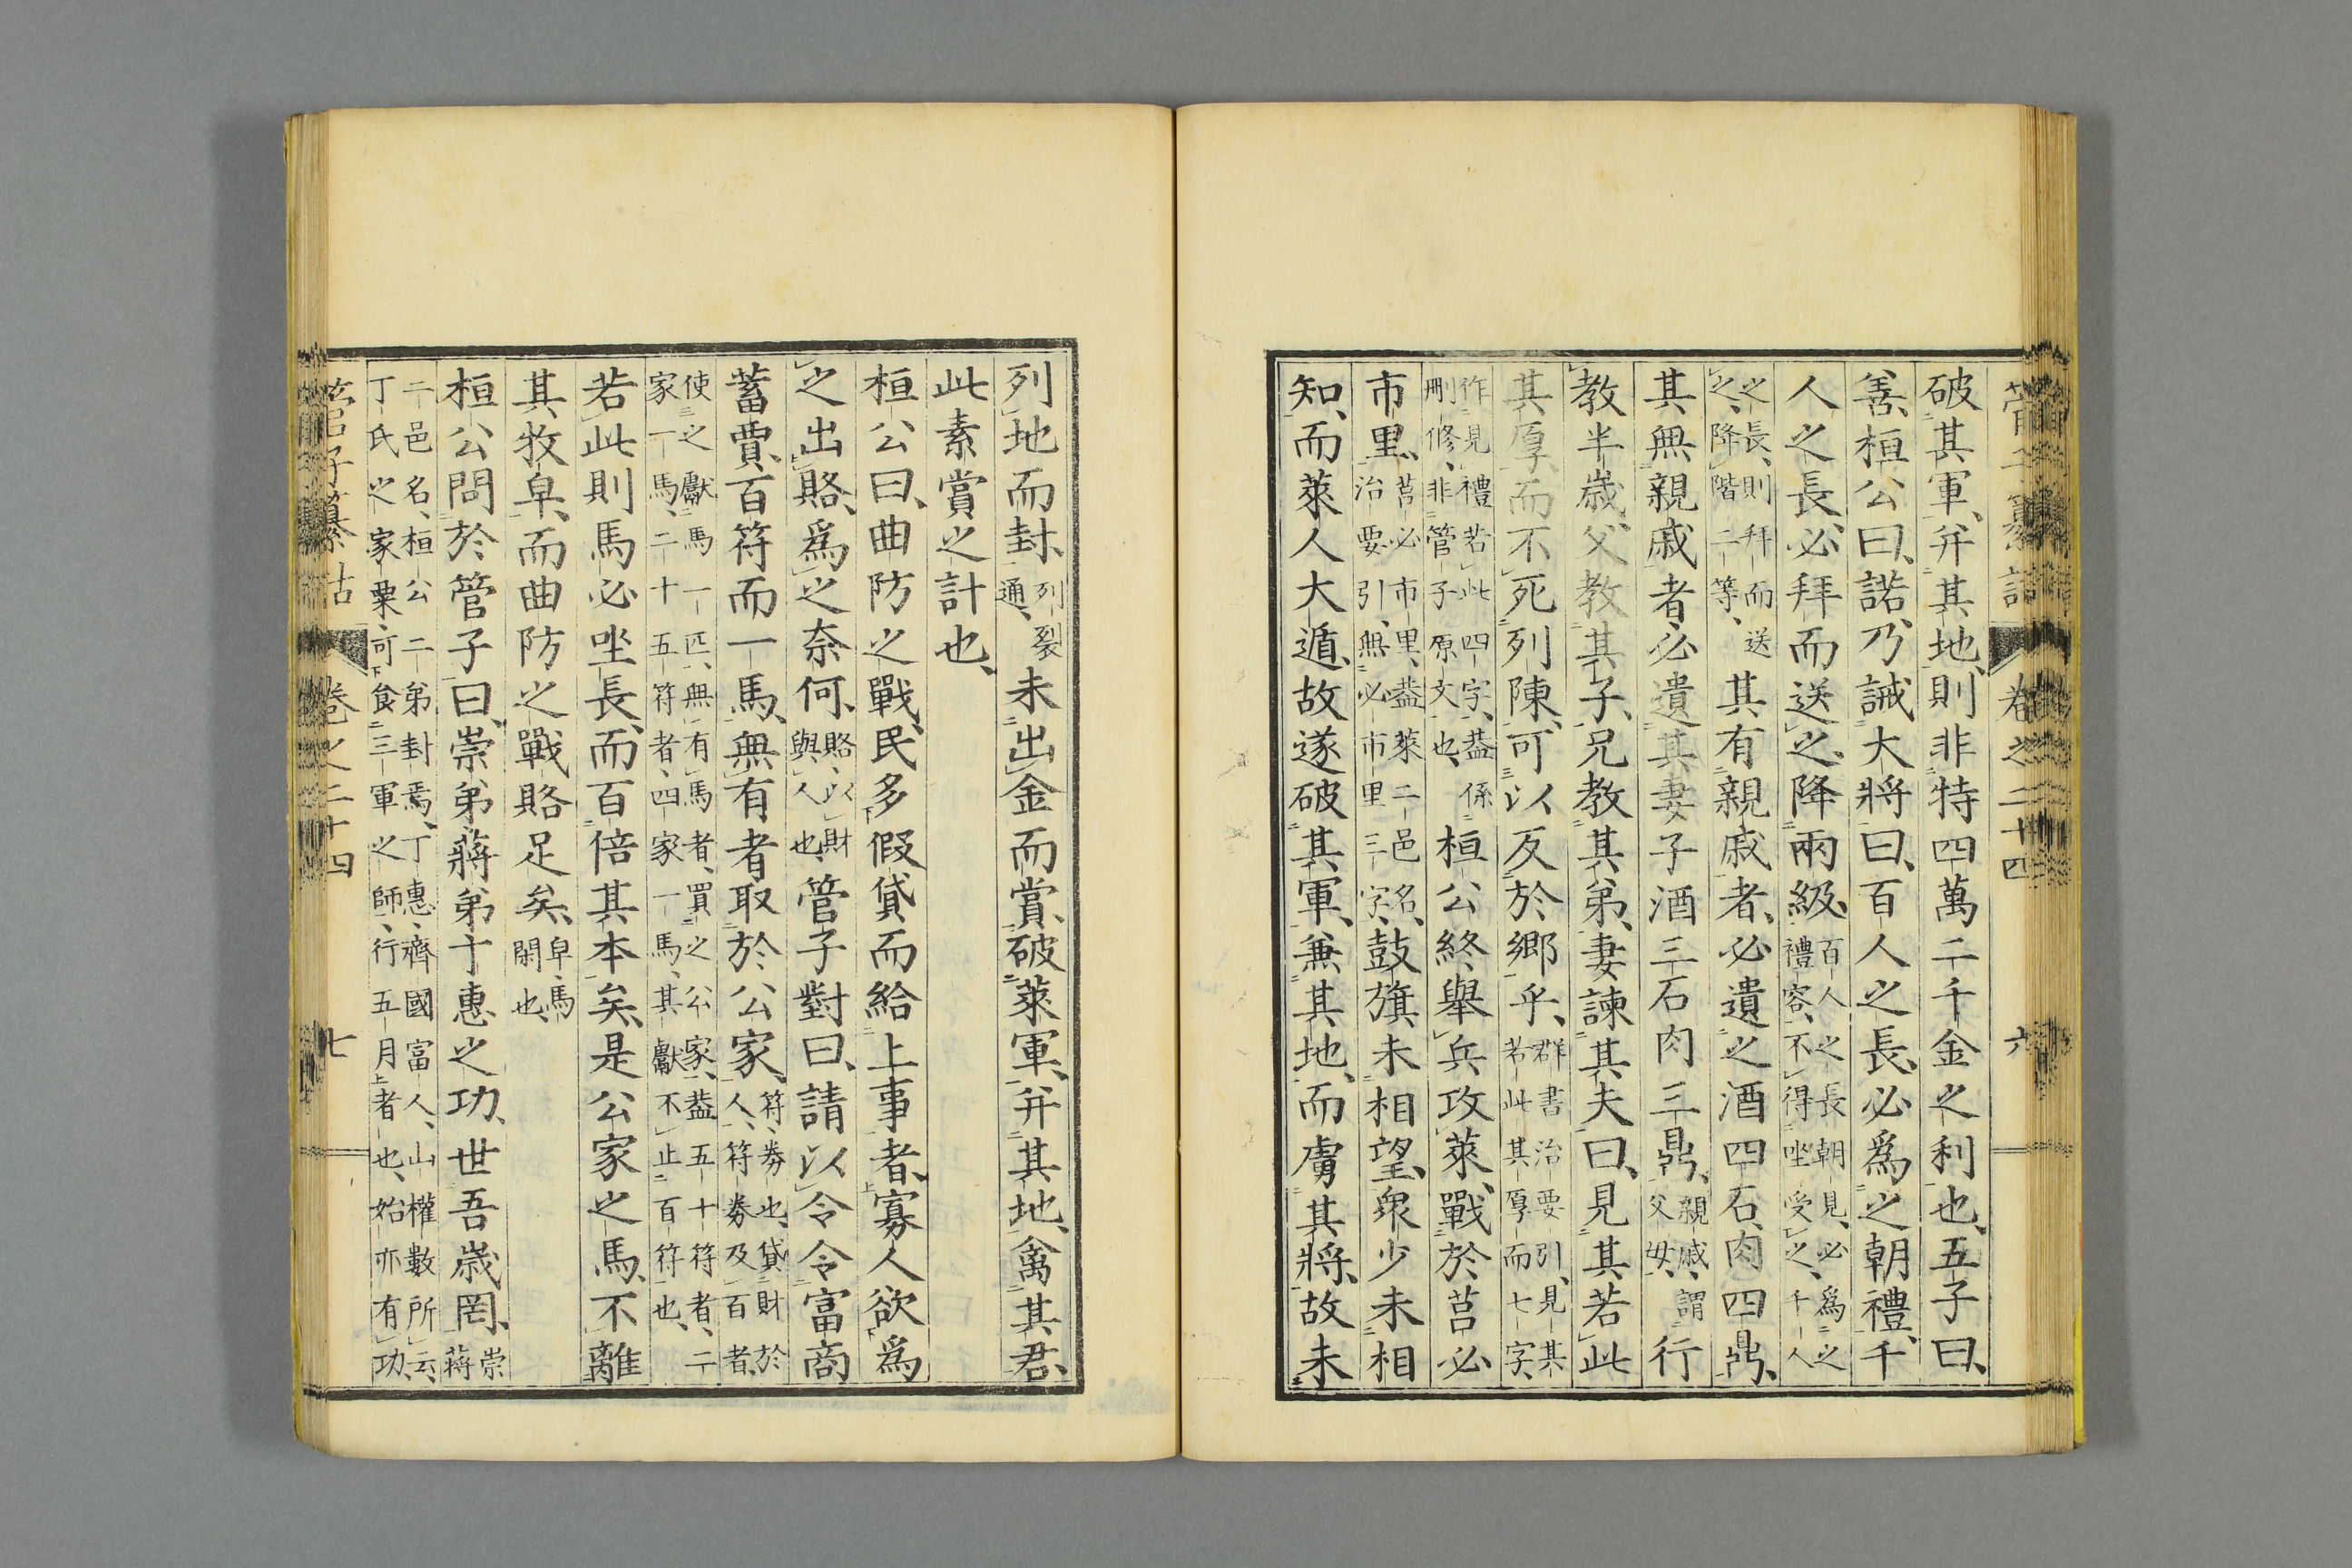 管子纂詁 卷之二十四 六
破其軍、幷其地、則非特四萬二千金之利也、五子曰、
善、桓公曰、諾、乃誡大將曰、百人之長、必爲之朝禮、千
人之長、必拜而送之、降兩級、百人之長朝見、必爲之禮容、不得坐受之、千人
之長、則拜而送之、降階二等、其有親戚者、必遺之酒四石、肉四鼎、
其無親戚者、必遺其妻子酒三石肉三鼎、親戚、謂父母、行
教半歲、父教其子、兄教其弟、妻諫其夫曰、見其若此
其厚、而不死列陳、可以反於鄉乎、群書治要引、見其若此其厚而七字、
作見禮若此四字、葢係刪修、非管子原文也、桓公終舉兵攻萊、戰於莒必
市里、莒必市里、葢萊二邑名、治要引、無必市里三字、鼓旗未相望、衆少未相
知、而萊人大遁、故遂破其軍、兼其地、而虜其將、故未
列地而封、列裂通、未出金而賞、破萊軍、幷其地、禽其君、
此素賞之計也、
桓公曰、曲防之戰、民多假貸而給上事者、寡人欲爲
之出賂、爲之奈何、賂、以財與人也、管子對曰、請以令令富商
蓄賈、百符而一馬、無有者取於公家、符、券也、貸財於人、符券及百者、
使之獻馬一匹、無有馬者、買之公家、葢五十符者、二家一馬、二十五符者、四家一馬、其獻不止百符也、
若此則馬必坐長、而百倍其本矣、是公家之馬、不離
其牧皁、而曲防之戰賂足矣、皁、馬閑也、
桓公問於管子曰、崇弟蔣弟十惠之功、世吾歲罔、崇蔣
二邑名、桓公二弟封焉、丁惠、齊國富人、山權數所云、丁氏之家粟、可食三軍之師、行五月者也、始亦有功、
管子纂詁 卷之二十四 七